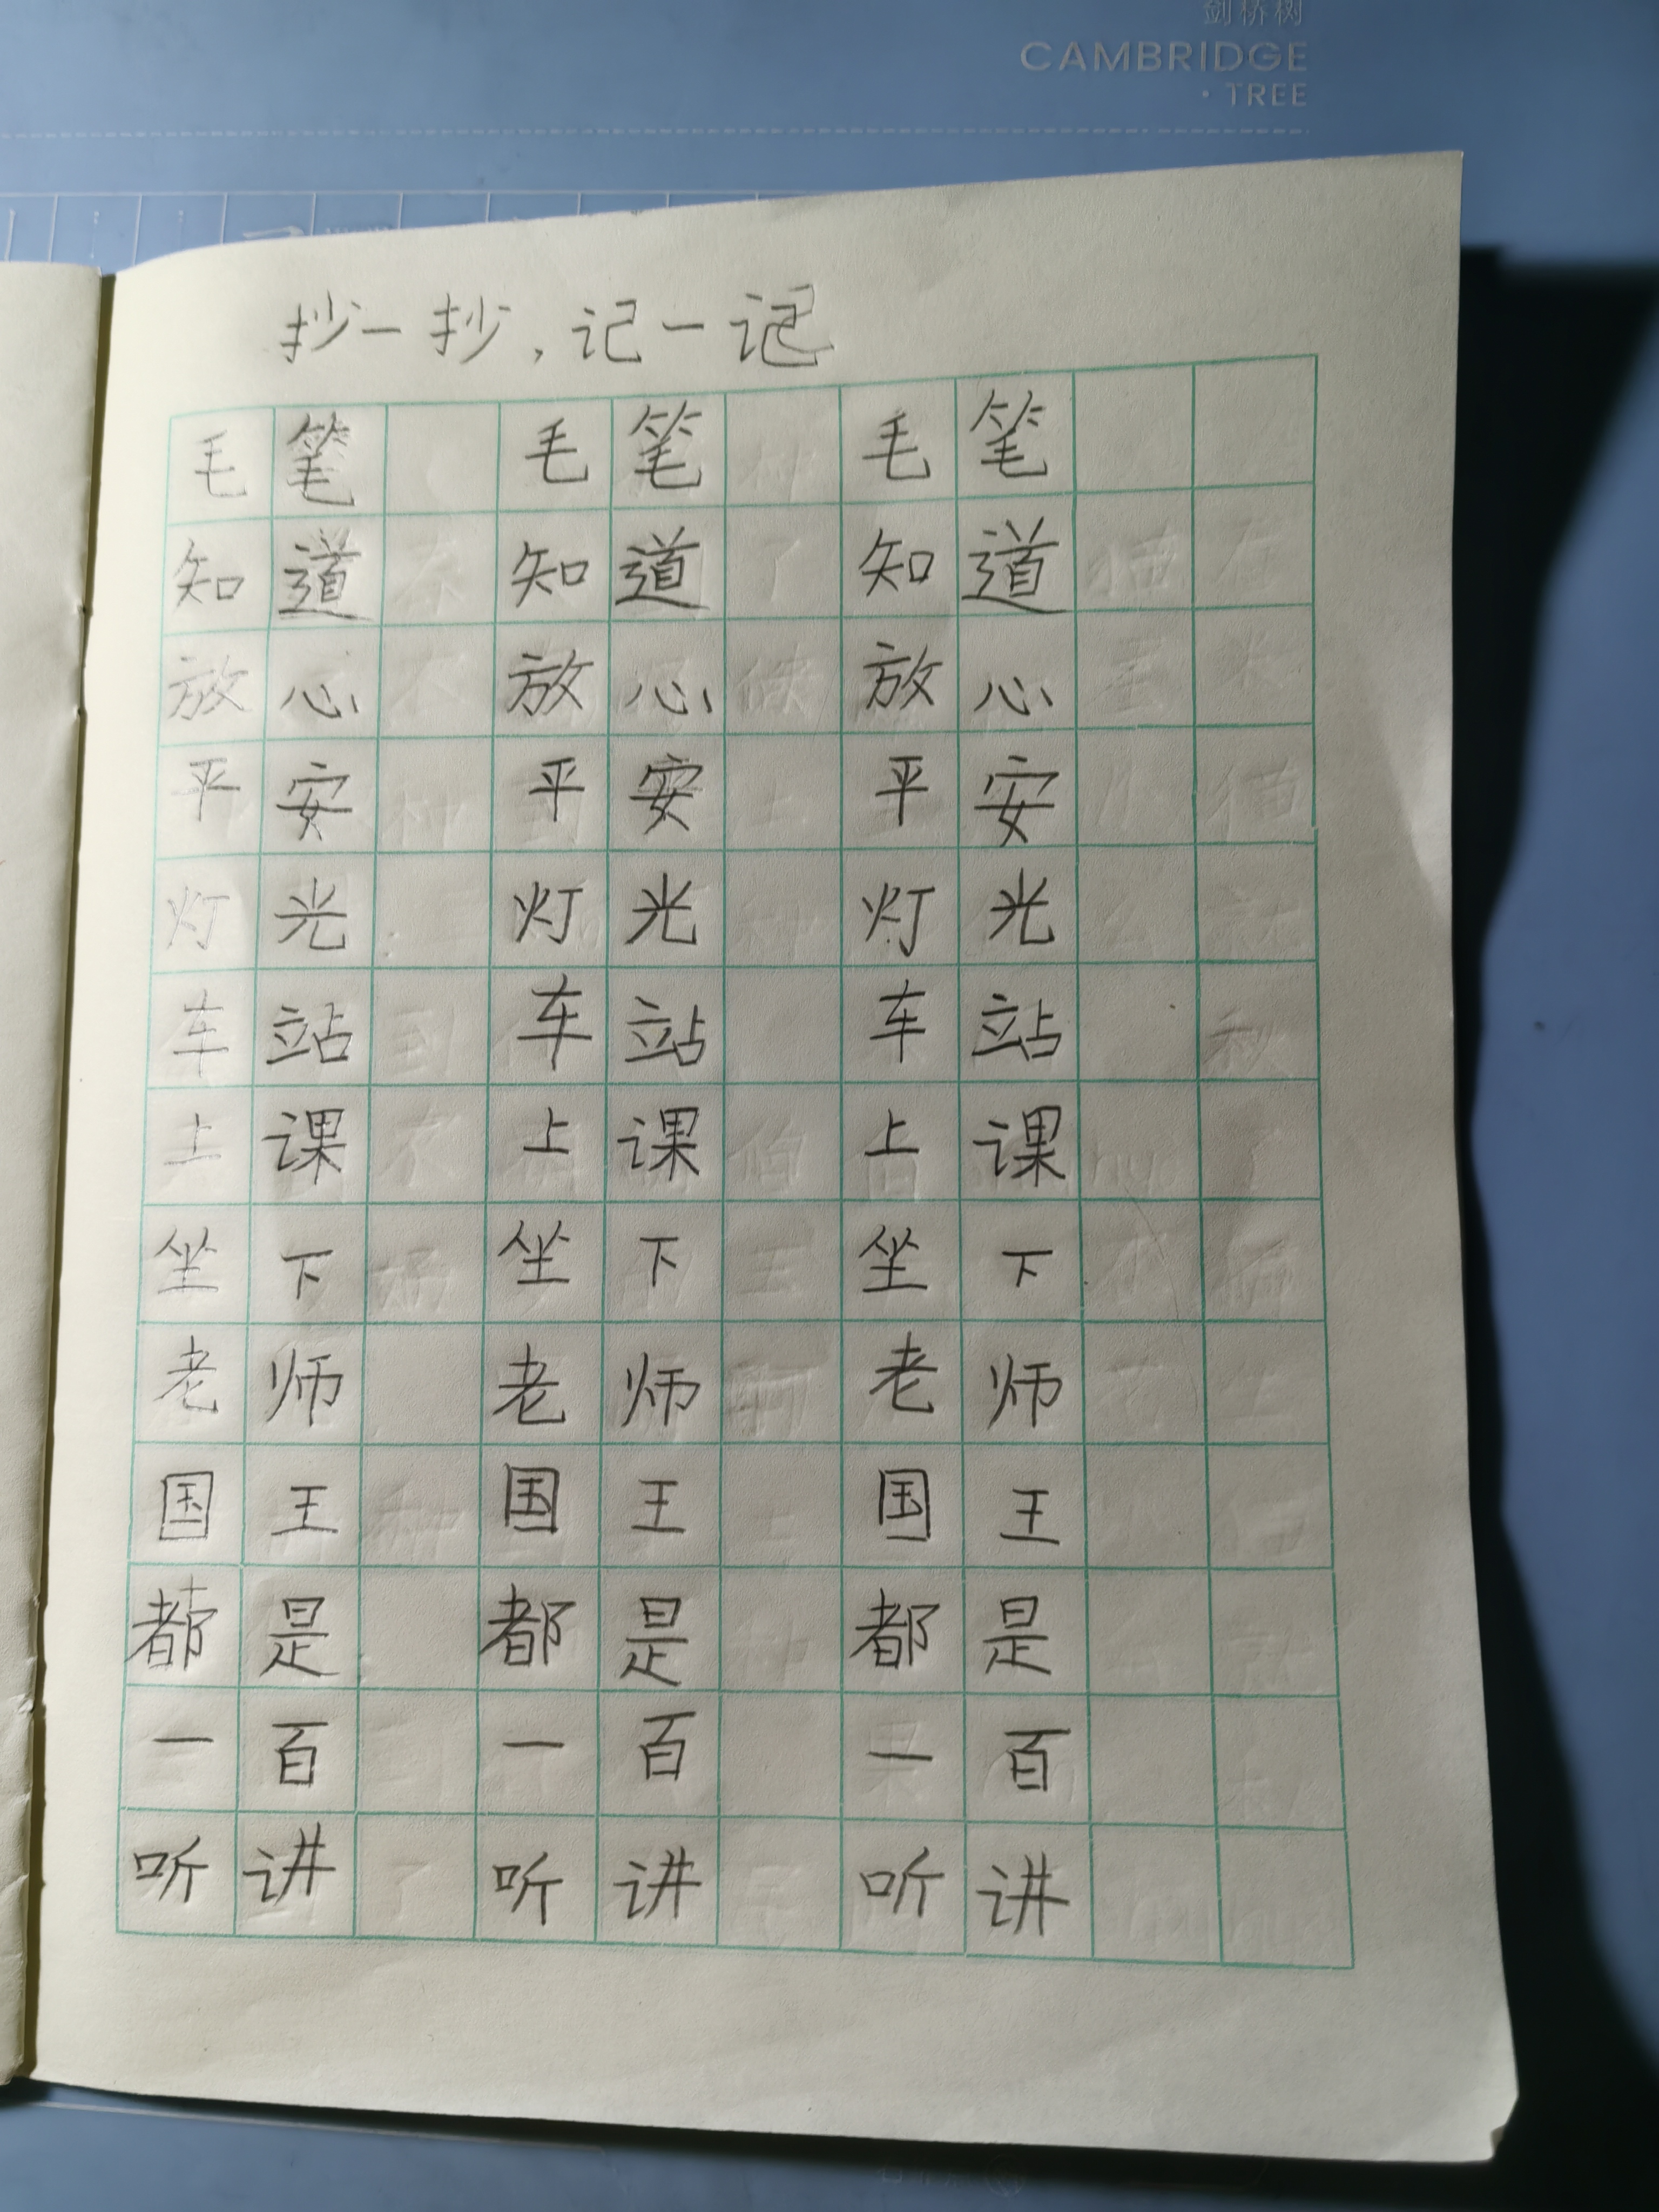 剑桥树
CAMBRIDGE
· TREE
抄一抄，记一记
毛笔 毛笔 毛笔
知道 知道 知道
放心 放心 放心
平安 平安 平安
灯光 灯光 灯光
车站 车站 车站
上课 上课 上课
坐下 坐下 坐下
老师 老师 老师
国王 国王 国王
都是 都是 都是
一百 一百 一百
听讲 听讲 听讲